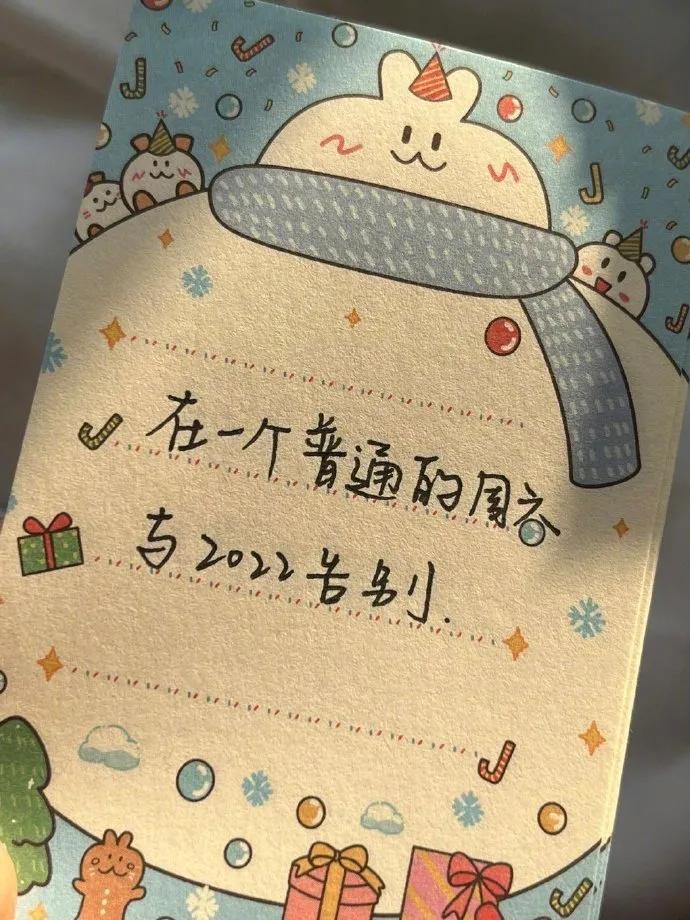 在一个普通的周六
与2022告别.